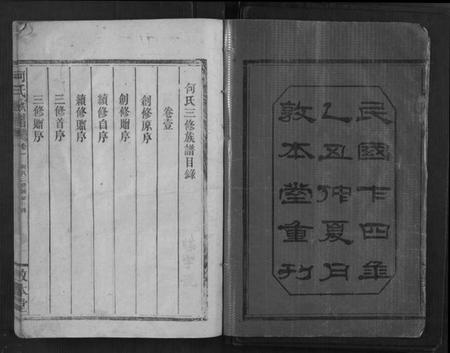 民國十四年
乙丑仲夏月
敦本堂重刊
何氏三修族譜目錄
卷壹
創修原序
創修贈序
續修自序
續修贈序
三修首序
三修贈序
何氏族譜
敦本堂